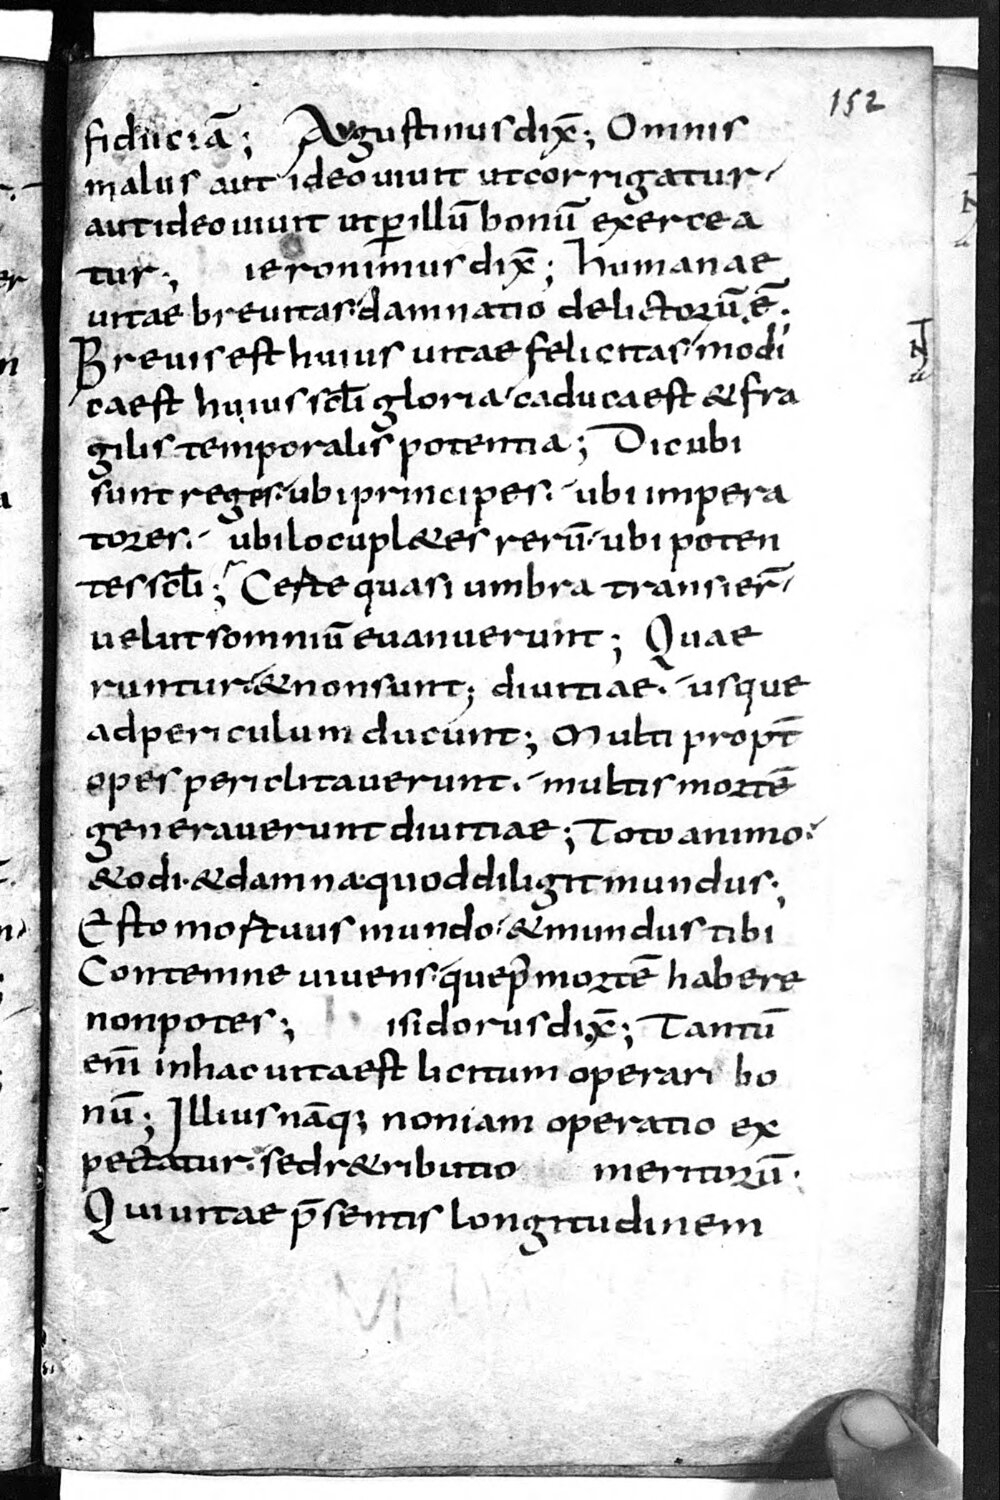 152
fiduciā; Augustinus dix̄; Omnis
malus aut ideo uiuit ut corrigatur
aut ideo uiuit ut ꝑ illū bonū exercea
tur; ieronimus dix̄; humanae
uitae breuitas damnatio delictorū ē.
Breuis est huius uitae felicitas modi
ca est huius scl̄i gloria caduca est & fra
gilis temporalis potentia; Dic ubi
sunt reges. ubi principes. ubi impera
tores. ubi locupl&es rerū. ubi poten
tes scl̄i; Certe quasi umbra transier̄
uelut somniū euanuerunt; Quae
runtur & non sunt; diuitiae. usque
ad periculum ducunt; Multi propt̄
opes periclitauerunt. multis mortē
generauerunt diuitiae; Toto animo
& odi. & damna quod diligit mundus;
Esto mortuus mundo. & mundus tibi
Contemne uiuens que p̄ mortē habere
non potes; isidorus dix̄; Tantū
enī in hac uita est licitum operari bo
nū; Illius nāq; non iam operatio ex
pectatur. sed r&ributio meritorū.
Qui uitae p̄sentis longitudinem